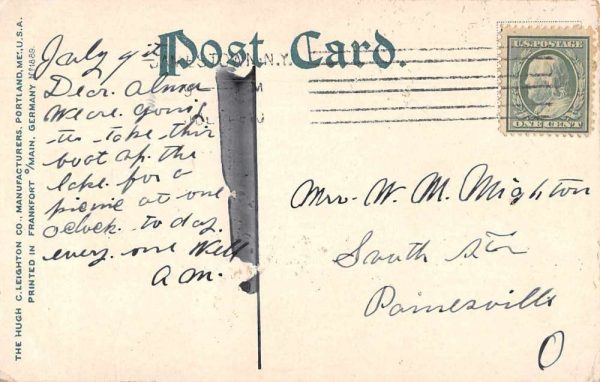 Post Card.
July 9th
Dear. Alma
We are. going
to take this
boat up. the
lake. for a
picnic at one
oclock. to day.
every. one Well
A M.
N.Y.
M
U.S. POSTAGE
ONE CENT
Mrs. W. M. Mighton
South St
Painesville
O
THE HUGH C. LEIGHTON CO., MANUFACTURERS, PORTLAND, ME., U.S.A.
PRINTED IN FRANKFORT o/MAIN, GERMANY No 1889.